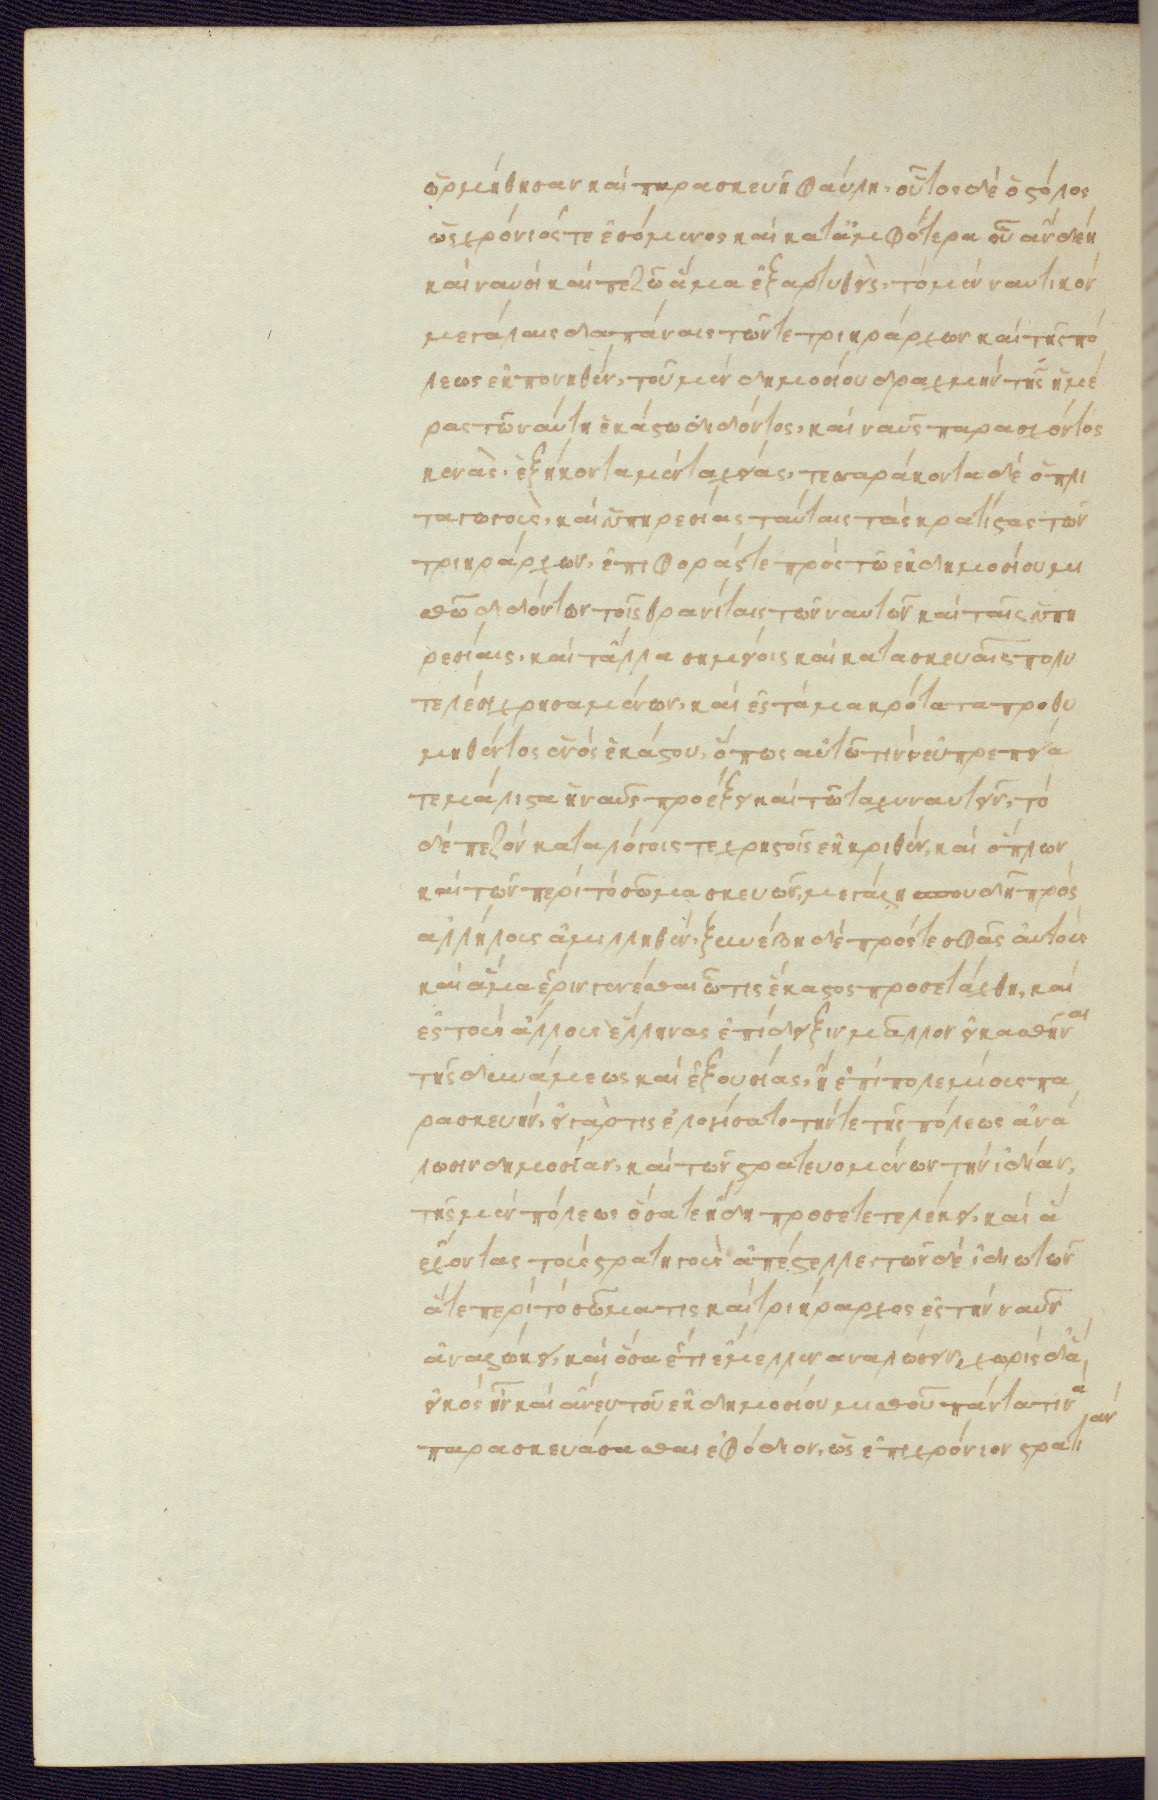 ὡρμήθησαν καὶ παρασκευῆ φαύλη. οὗτος δὲ ὁ στόλος
ὡς χρόνιός τε ἐσόμενος καὶ κατ' ἀμφότερα οὗ ἂν δέη
καὶ ναυσὶ καὶ πεζῶ ἅμα ἐξαρτυθεὶς. τὸ μὲν ναυτικὸν
μεγάλαις δαπάναις τῶν τε τριηράρχων καὶ τῆς πό
λεως ἐκπονηθὲν. τοῦ μὲν δημοσίου δραχμὴν τῆς ἡμέ
ρας τῶ ναύτη ἑκάστω διδόντος. καὶ ναῦς παρασχόντος
κενὰς. ἑξήκοντα μὲν ταχείας. τεσσαράκοντα δὲ ὁπλι
ταγωγοὺς. καὶ ὑπηρεσίας ταύταις τὰς κρατίστας τῶν
τριηράρχων. ἐπιφοράς τε πρὸς τῶ ἐκ δημοσίου μι
σθῶ διδόντων τοῖς θρανίταις τῶν ναυτῶν καὶ ταῖς ὑπη
ρεσίαις. καὶ τἄλλα σημείοις καὶ κατασκευαῖς πολυ
τελέσι χρησαμένων. καὶ ἐς τὰ μακρότατα προθυ
μηθέντος ἑνὸς ἑκάστου. ὅπως αὐτῶ τινὶ εὐπρεπεία
τε μάλιστα ἡ ναῦς προέξει καὶ τῶ ταχυναυτεῖν. τὸ
δὲ πεζὸν καταλόγοις τε χρηστοῖς ἐκκριθὲν. καὶ ὅπλων
καὶ τῶν περὶ τὸ σῶμα σκευῶν. μεγάλη σπουδῆ πρὸς
ἀλλήλους ἁμιλληθὲν. ξυνέβη δὲ πρός τε σφᾶς αὐτοὺς
καὶ ἅμα ἔριν γενέσθαι ὧ τις ἕκαστος προσετάχθη. καὶ
ἐς τοὺς ἄλλους ἕλληνας ἐπίδειξιν μᾶλλον εἰκασθῆναι
τῆς δυνάμεως καὶ ἐξουσίας. ἢ ἐπὶ πολεμίους πα
ρασκευὴν. εἰ γάρ τις ἐλογίσατο τήν τε τῆς πόλεως ἀνά
λωσιν δημοσίαν. καὶ τῶν στρατευομένων τὴν ἰδίαν.
τῆς μὲν πόλεως ὅσα τε ἤδη προσετετελέκει. καὶ ἃ
ἔχοντας τοὺς στρατηγοὺς ἀπέστελλε. τῶν δὲ ἰδιωτῶν
ἅ τε περὶ τὸ σῶμά τις καὶ τριήραρχος ἐς τὴν ναῦν
ἀναλώκει. καὶ ὅσα ἔτι ἔμελλεν ἀναλώσειν. χωρὶς δ' ἃ
εἰκὸς ἦν καὶ ἄνευ τοῦ ἐκ δημοσίου μισθοῦ πάντα τινὰ
παρασκευάσασθαι ἐφόδιον. ὡς ἐπὶ χρόνιον στρατείαν